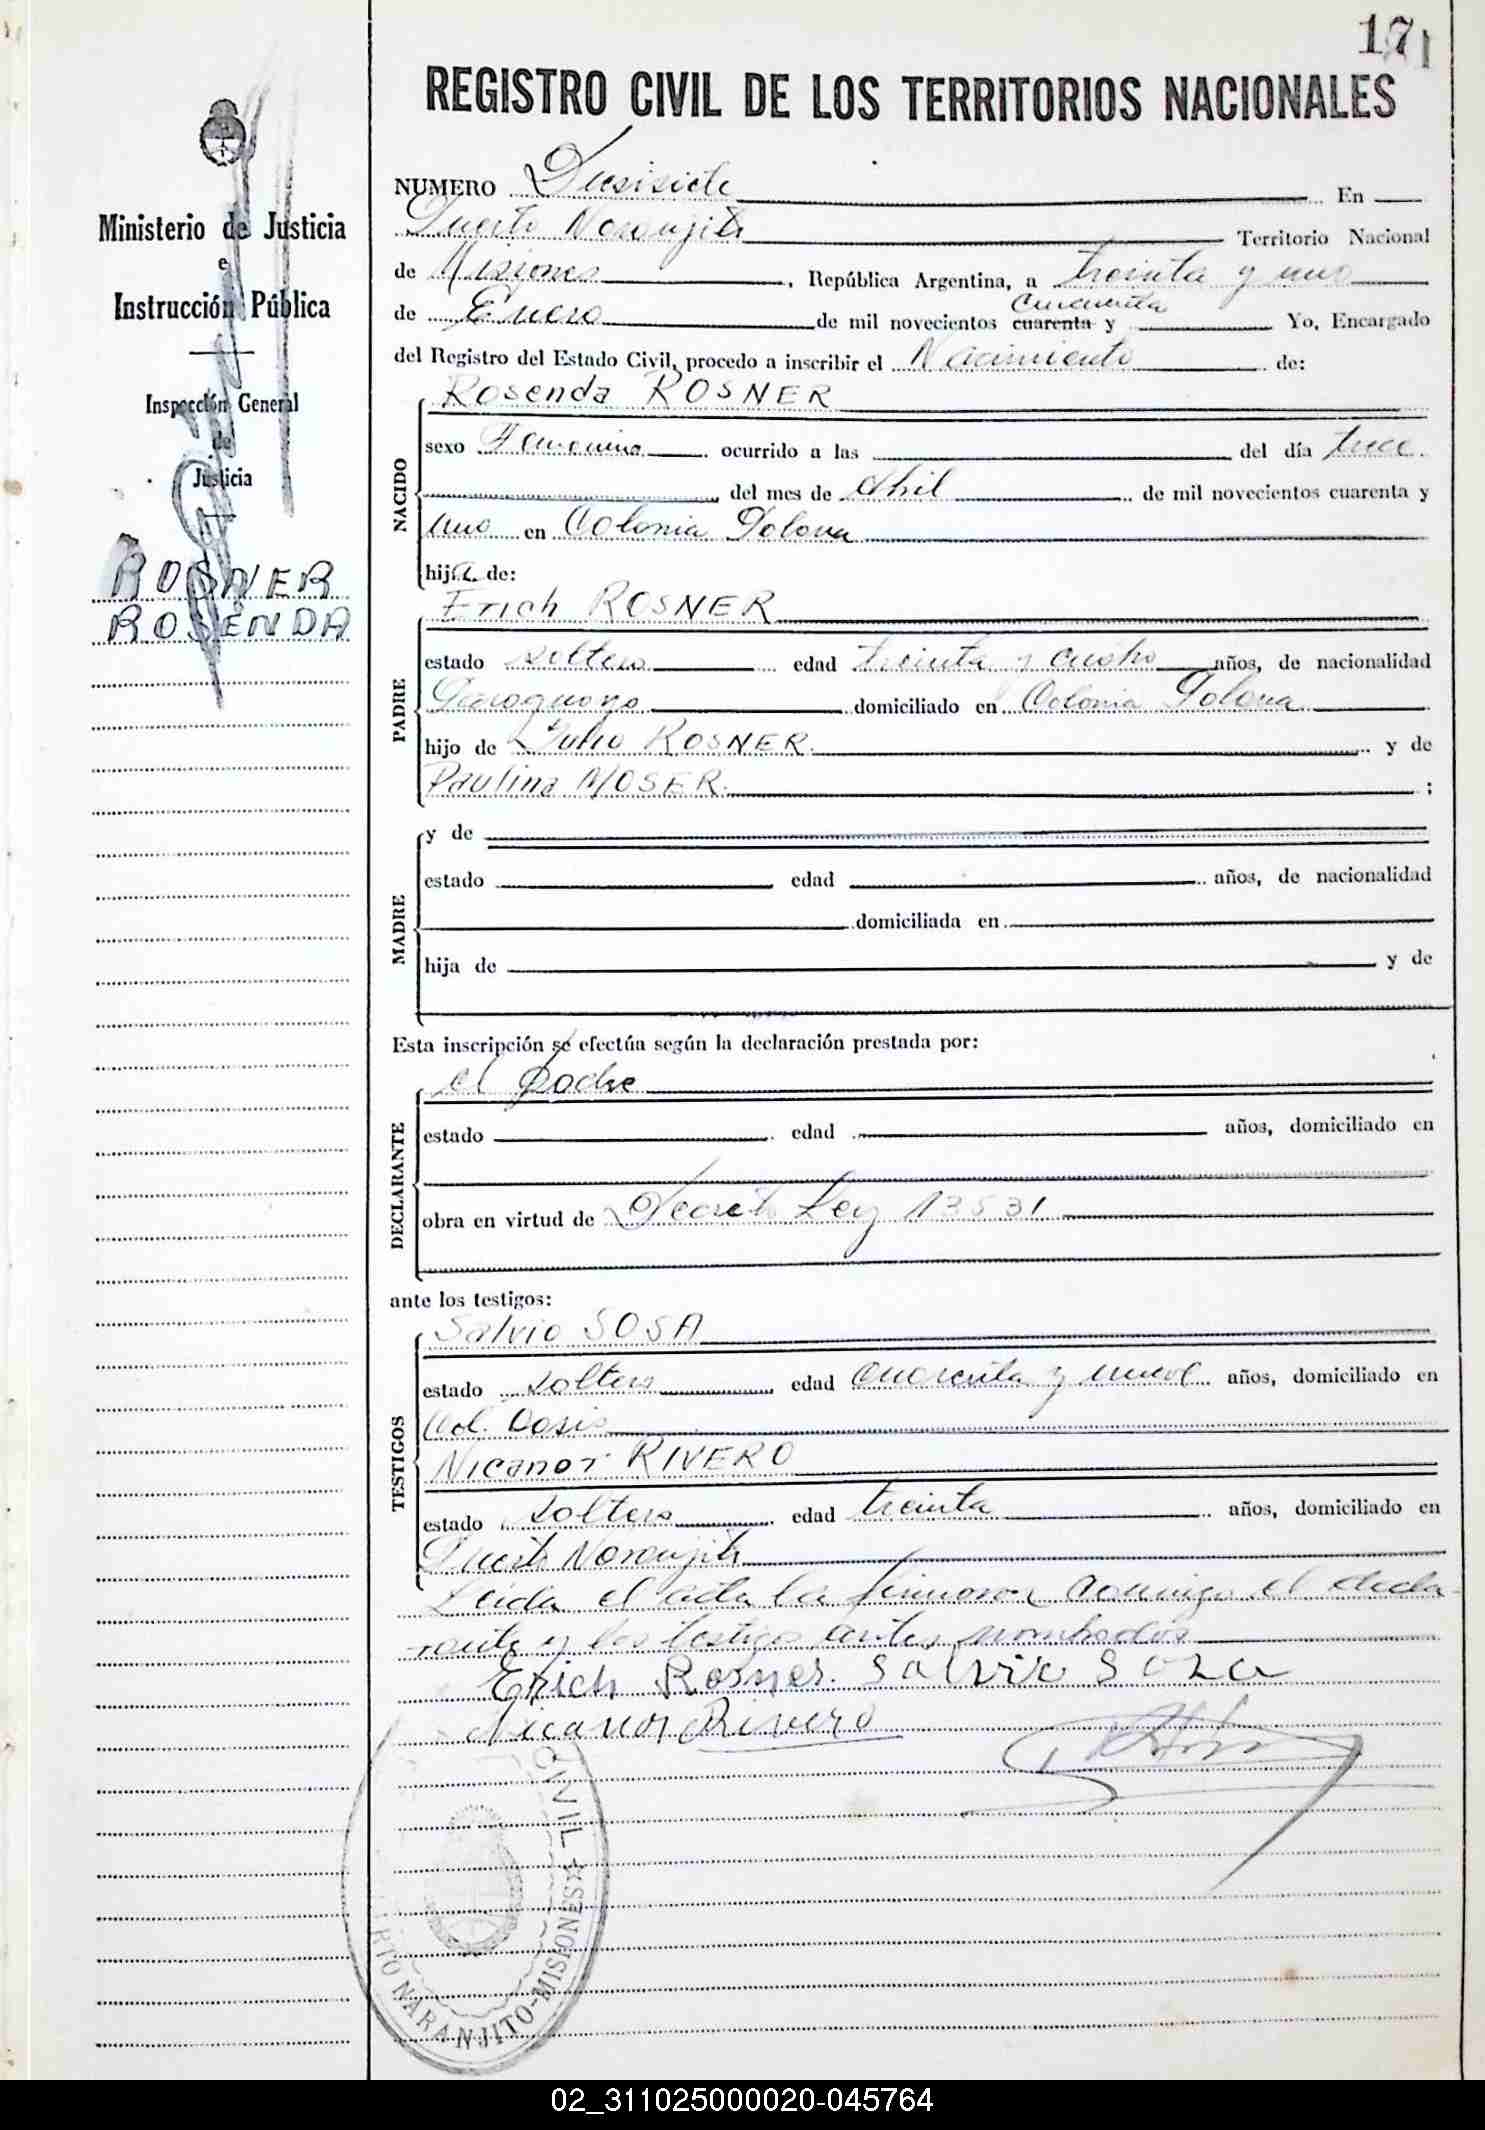 17
REGISTRO CIVIL DE LOS TERRITORIOS NACIONALES
Ministerio de Justicia
e
Instrucción Pública
Inspección General
de
Justicia
ROSNER
ROSENDA
NUMERO Diesisiete En
Puerto Naranjito Territorio Nacional
de Misiones, República Argentina, a treinta y uno
cincuenta
de Enero de mil novecientos cuarenta y Yo, Encargado
del Registro del Estado Civil, procedo a inscribir el Nacimiento de:
NACIDO
Rosenda ROSNER
sexo Femenino ocurrido a las del día trece
del mes de Abril de mil novecientos cuarenta y
uno en Colonia Polona
hija de:
PADRE
Erich ROSNER
estado soltero edad treinta y cuatro años, de nacionalidad
Paraguaya domiciliado en Colonia Polona
hijo de Julio ROSNER y de
Paulina MOSER ;
MADRE
y de
estado edad años, de nacionalidad
domiciliada en
hija de y de
Esta inscripción se efectúa según la declaración prestada por:
DECLARANTE
el padre
estado edad años, domiciliado en
obra en virtud de Decreto Ley 13531
ante los testigos:
TESTIGOS
Salvio SOSA
estado soltero edad cuarenta y nueve años, domiciliado en
Col. Oasis
Nicanor RIVERO
estado soltero edad treinta años, domiciliado en
Puerto Naranjito
Leida el acta la firmaron conmigo el decla-
rante y los testigos antes nombrados
Erich Rosner. Salvio Soza
Nicanor Rivero
CIVIL ☆
RTO NARANJITO-MISIONES
02_311025000020-045764